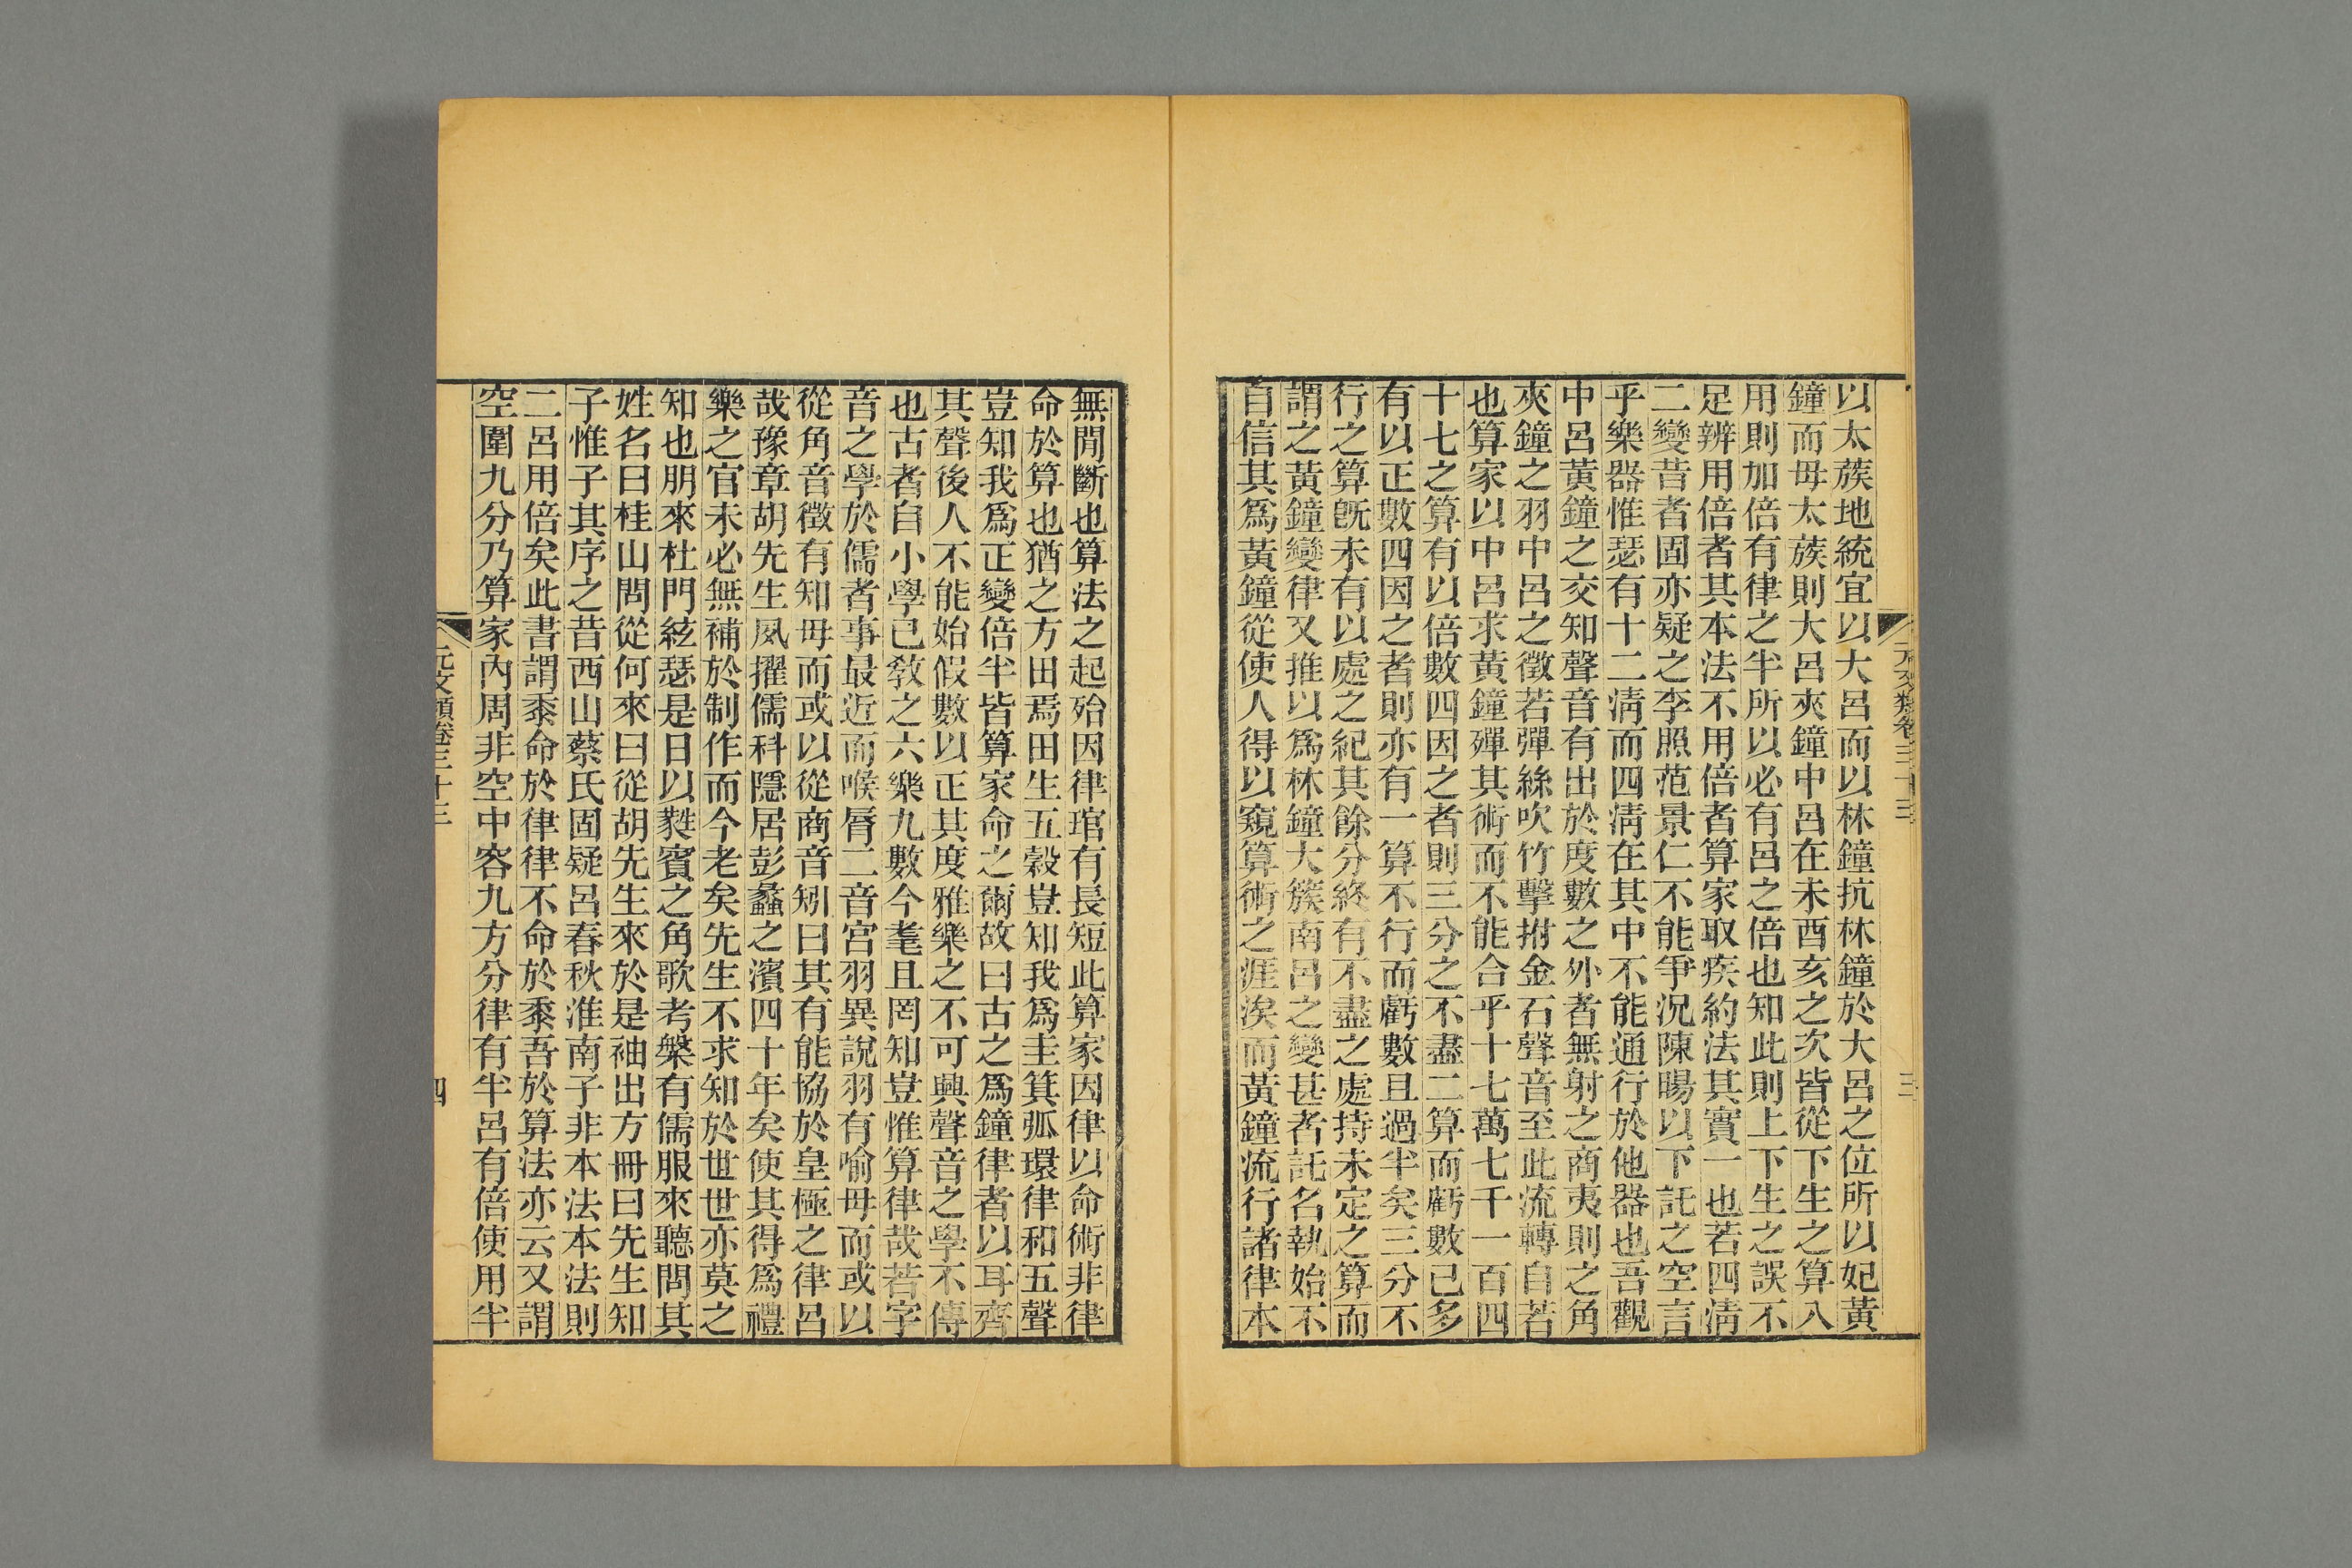 以太蔟地統宜以大呂而以林鐘抗林鐘於大呂之位所以妃黃
鐘而毋太蔟則大呂夾鐘中呂在未酉亥之次皆從下生之算八
用則加倍有律之半所以必有呂之倍也知此則上下生之誤不
足辨用倍者其本法不用倍者算家取疾約法其實一也若四淸
二變昔者固亦疑之李照范景仁不能爭況陳暘以下託之空言
乎樂器惟瑟有十二淸而四淸在其中不能通行於他器也吾觀
中呂黃鐘之交知聲音有出於度數之外者無射之商夷則之角
夾鐘之羽中呂之徵若彈絲吹竹擊拊金石聲音至此流轉自若
也算家以中呂求黃鐘殫其術而不能合乎十七萬七千一百四
十七之算有以倍數四因之者則三分之不盡二算而虧數已多
有以正數四因之者則亦有一算不行而虧數且過半矣三分不
行之算旣未有以處之紀其餘分終有不盡之處持未定之算而
謂之黃鐘變律又推以爲林鐘大簇南呂之變甚者託名執始不
自信其爲黃鐘從使人得以窺算術之涯涘而黃鐘流行諸律本
元文類卷三十三
三
無閒斷也算法之起殆因律琯有長短此算家因律以命術非律
命於算也猶之方田焉田生五穀豈知我爲圭箕弧環律和五聲
豈知我爲正變倍半皆算家命之爾故曰古之爲鐘律者以耳齊
其聲後人不能始假數以正其度雅樂之不可興聲音之學不傳
也古者自小學已敎之六樂九數今耄且罔知豈惟算律哉若字
音之學於儒者事最近而喉脣二音宮羽異說羽有喻毋而或以
從角音徵有知毋而或以從商音矧曰其有能協於皇極之律呂
哉豫章胡先生夙擢儒科隱居彭蠡之濱四十年矣使其得爲禮
樂之官未必無補於制作而今老矣先生不求知於世世亦莫之
知也朋來杜門絃瑟是日以蕤賓之角歌考槃有儒服來聽問其
姓名曰桂山問從何來曰從胡先生來於是袖出方冊曰先生知
子惟子其序之昔西山蔡氏固疑呂春秋淮南子非本法本法則
二呂用倍矣此書謂黍命於律律不命於黍吾於算法亦云又謂
空圍九分乃算家內周非空中容九方分律有半呂有倍使用半
元文類卷三十三
四